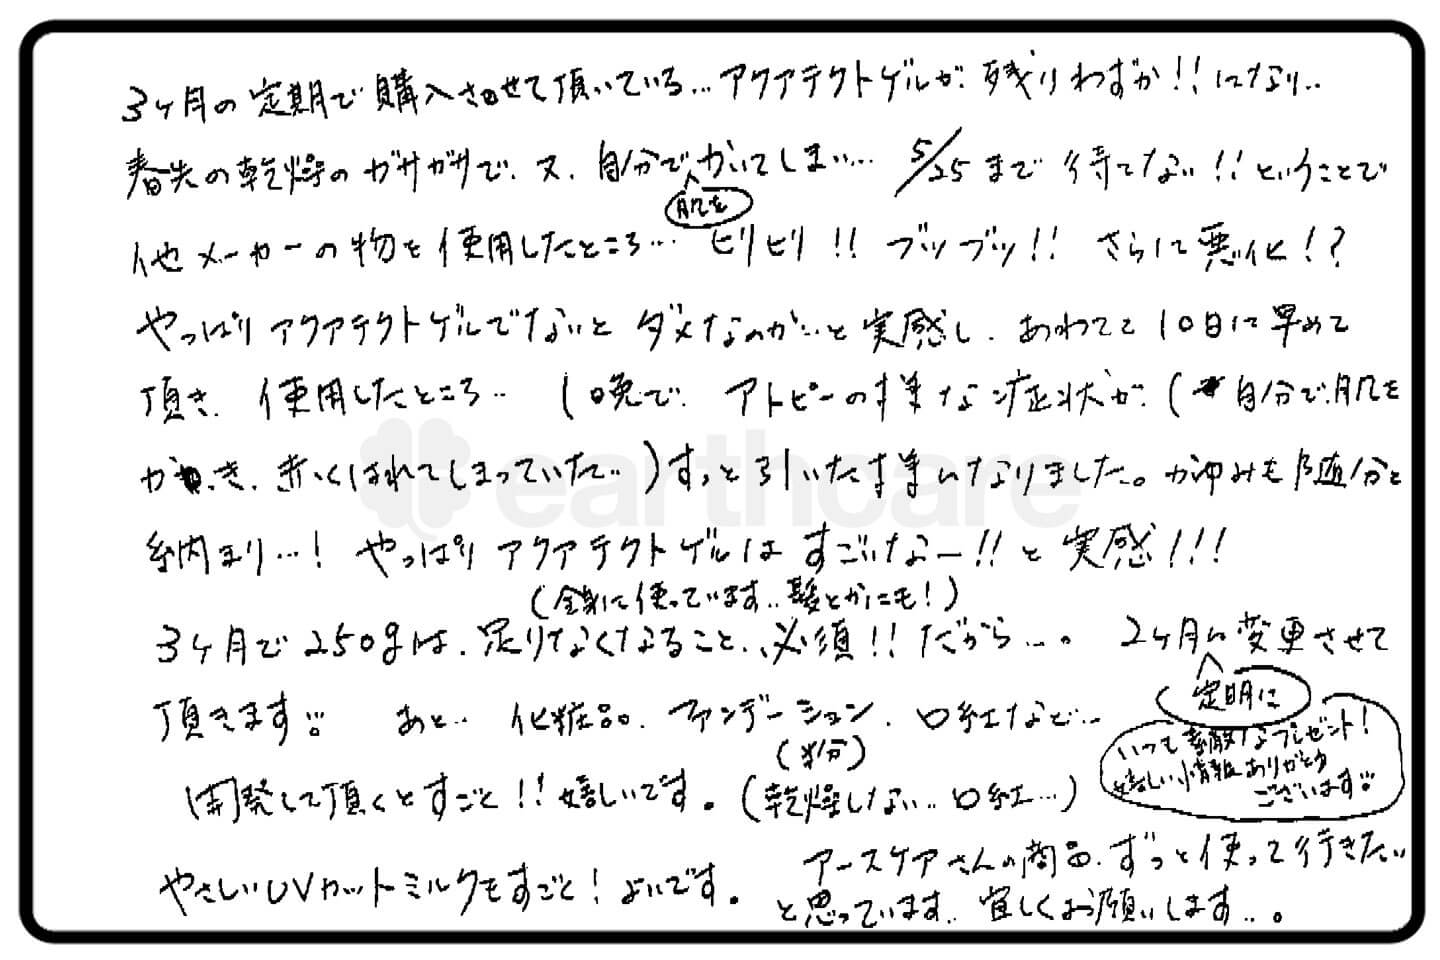 3ヶ月の定期で購入させて頂いている… アクアテクトゲルが 残りわずか!!になり..
春先の乾燥のガサガサで、又、自分でかいてしまい… 5/25まで 待てない!!ということで
肌を
他メーカーの物を使用したところ… ヒリヒリ!! ブツブツ!! さらに悪化!?
やっぱりアクアテクトゲルでないと ダメなのかいと実感し、あわてて10日に早めて
頂き、使用したところ.. 1晩で アトピーの様な症状が (自分で肌を
かき、赤くはれてしまっていた)すっと引いた様になりました。かゆみも随分と
納まり…! やっぱりアクアテクトゲルはすごいなー!!と実感!!!
(全身に使っています..髪とかにも!)
3ヶ月で250gは、足りなくなること、必須!!だから…。 2ヶ月に変更させて
定期に
頂きます。 あと… 化粧品、ファンデーション、口紅など…
(半分)
いつも素敵なプレゼント!
嬉しい情報ありがとう
ございます
開発して頂くとすごく!!嬉しいです。(乾燥しない..口紅…)
やさしいUVカットミルクもすごく!よいです。
アースケアさんの商品、ずっと使って行きたい
と思っています.. 宜しくお願いします…。
earthcare